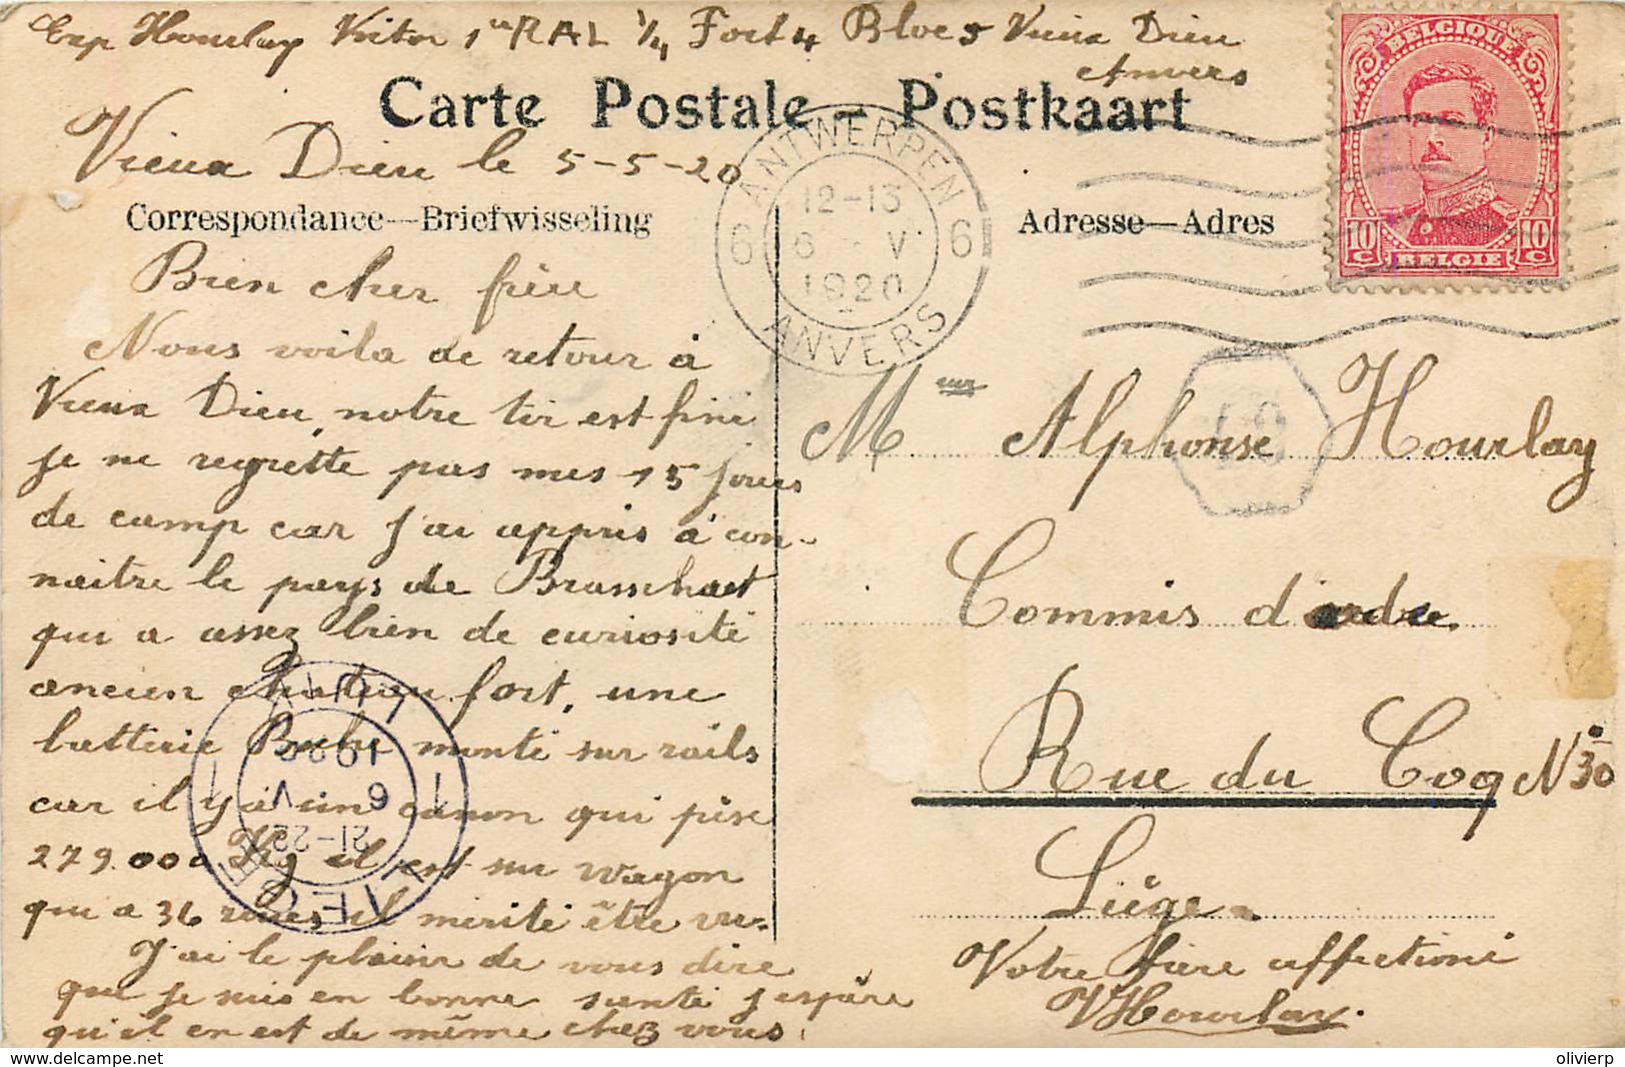 Exp Hourlay Victor 1er RAL 1/4 Fort 4 Bloc 5 Vieux Dieu
Anvers
Carte Postale - Postkaart
Vieux Dieu le 5-5-20
Correspondance—Briefwisseling
Bien cher frère
Nous voila de retour à
Vieux Dieu, notre tir est fini
je ne regrette pas mes 15 jours
de camp car j'ai appris à con-
naitre le pays de Brasschaet
qui a assez bien de curiosité
ancien chateau fort, une
batterie Boche monté sur rails
car il y a un canon qui pèse
279.000 Kg il est sur wagon
qui a 36 roues il mérite être vu.
J'ai le plaisir de vous dire
que je suis en bonne santé j'espère
qu'il en est de même chez vous.
ANTWERPEN
6 12-13 6
6 V
1920
ANVERS
BELGIQUE
10 C 10 C
BELGIE
Adresse—Adres
Mr Alphonse Hourlay
Commis d'ordre
Rue du Coq N° 30
Liége
Votre frère affectioné
VHourlay.
LUIK
1920
1 6 V 1
21-22
LIEGE
olivierp